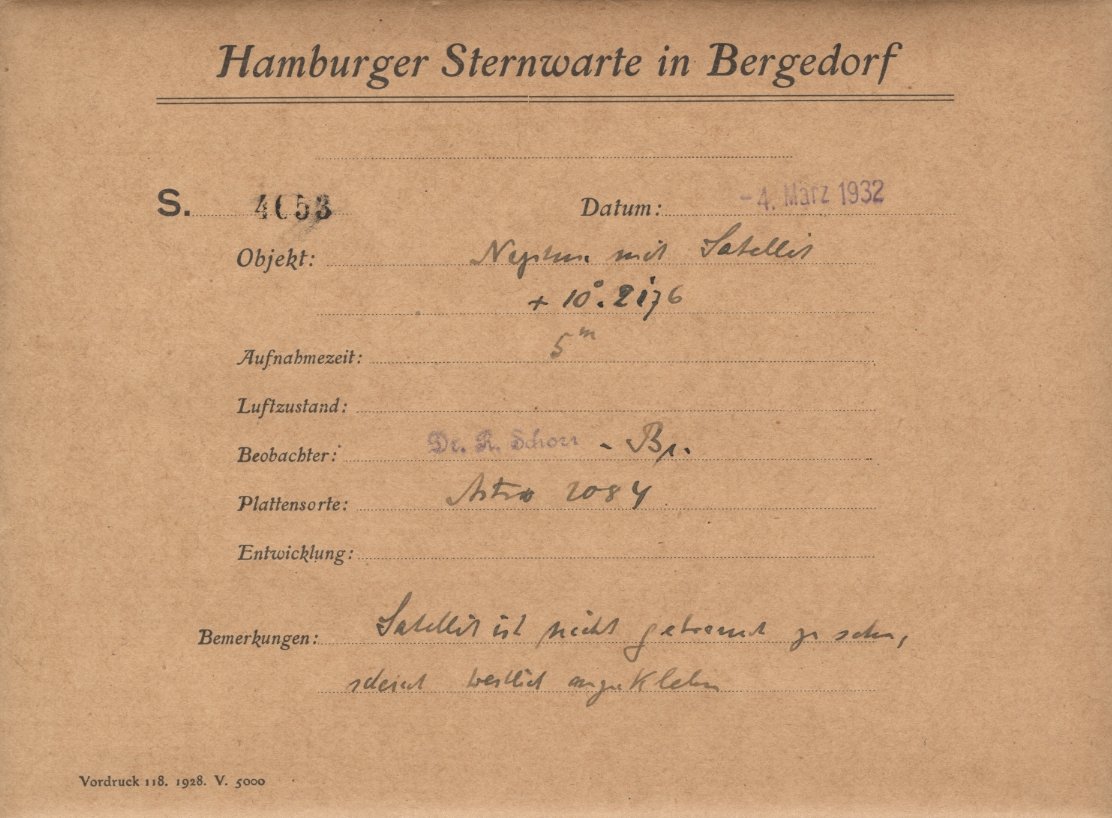 Hamburger Sternwarte in Bergedorf
S. 4053
Datum: -4. März 1932
Objekt: Neptun mit Satellit
+ 10°. 2176
Aufnahmezeit: 5ᵐ
Luftzustand:
Beobachter: Dr. R. Schorr - Br.
Plattensorte: Astro 2084
Entwicklung:
Bemerkungen: Satellit ist nicht getrennt zu sehn,
scheint westlich angekleben
Vordruck 118. 1928. V. 5000